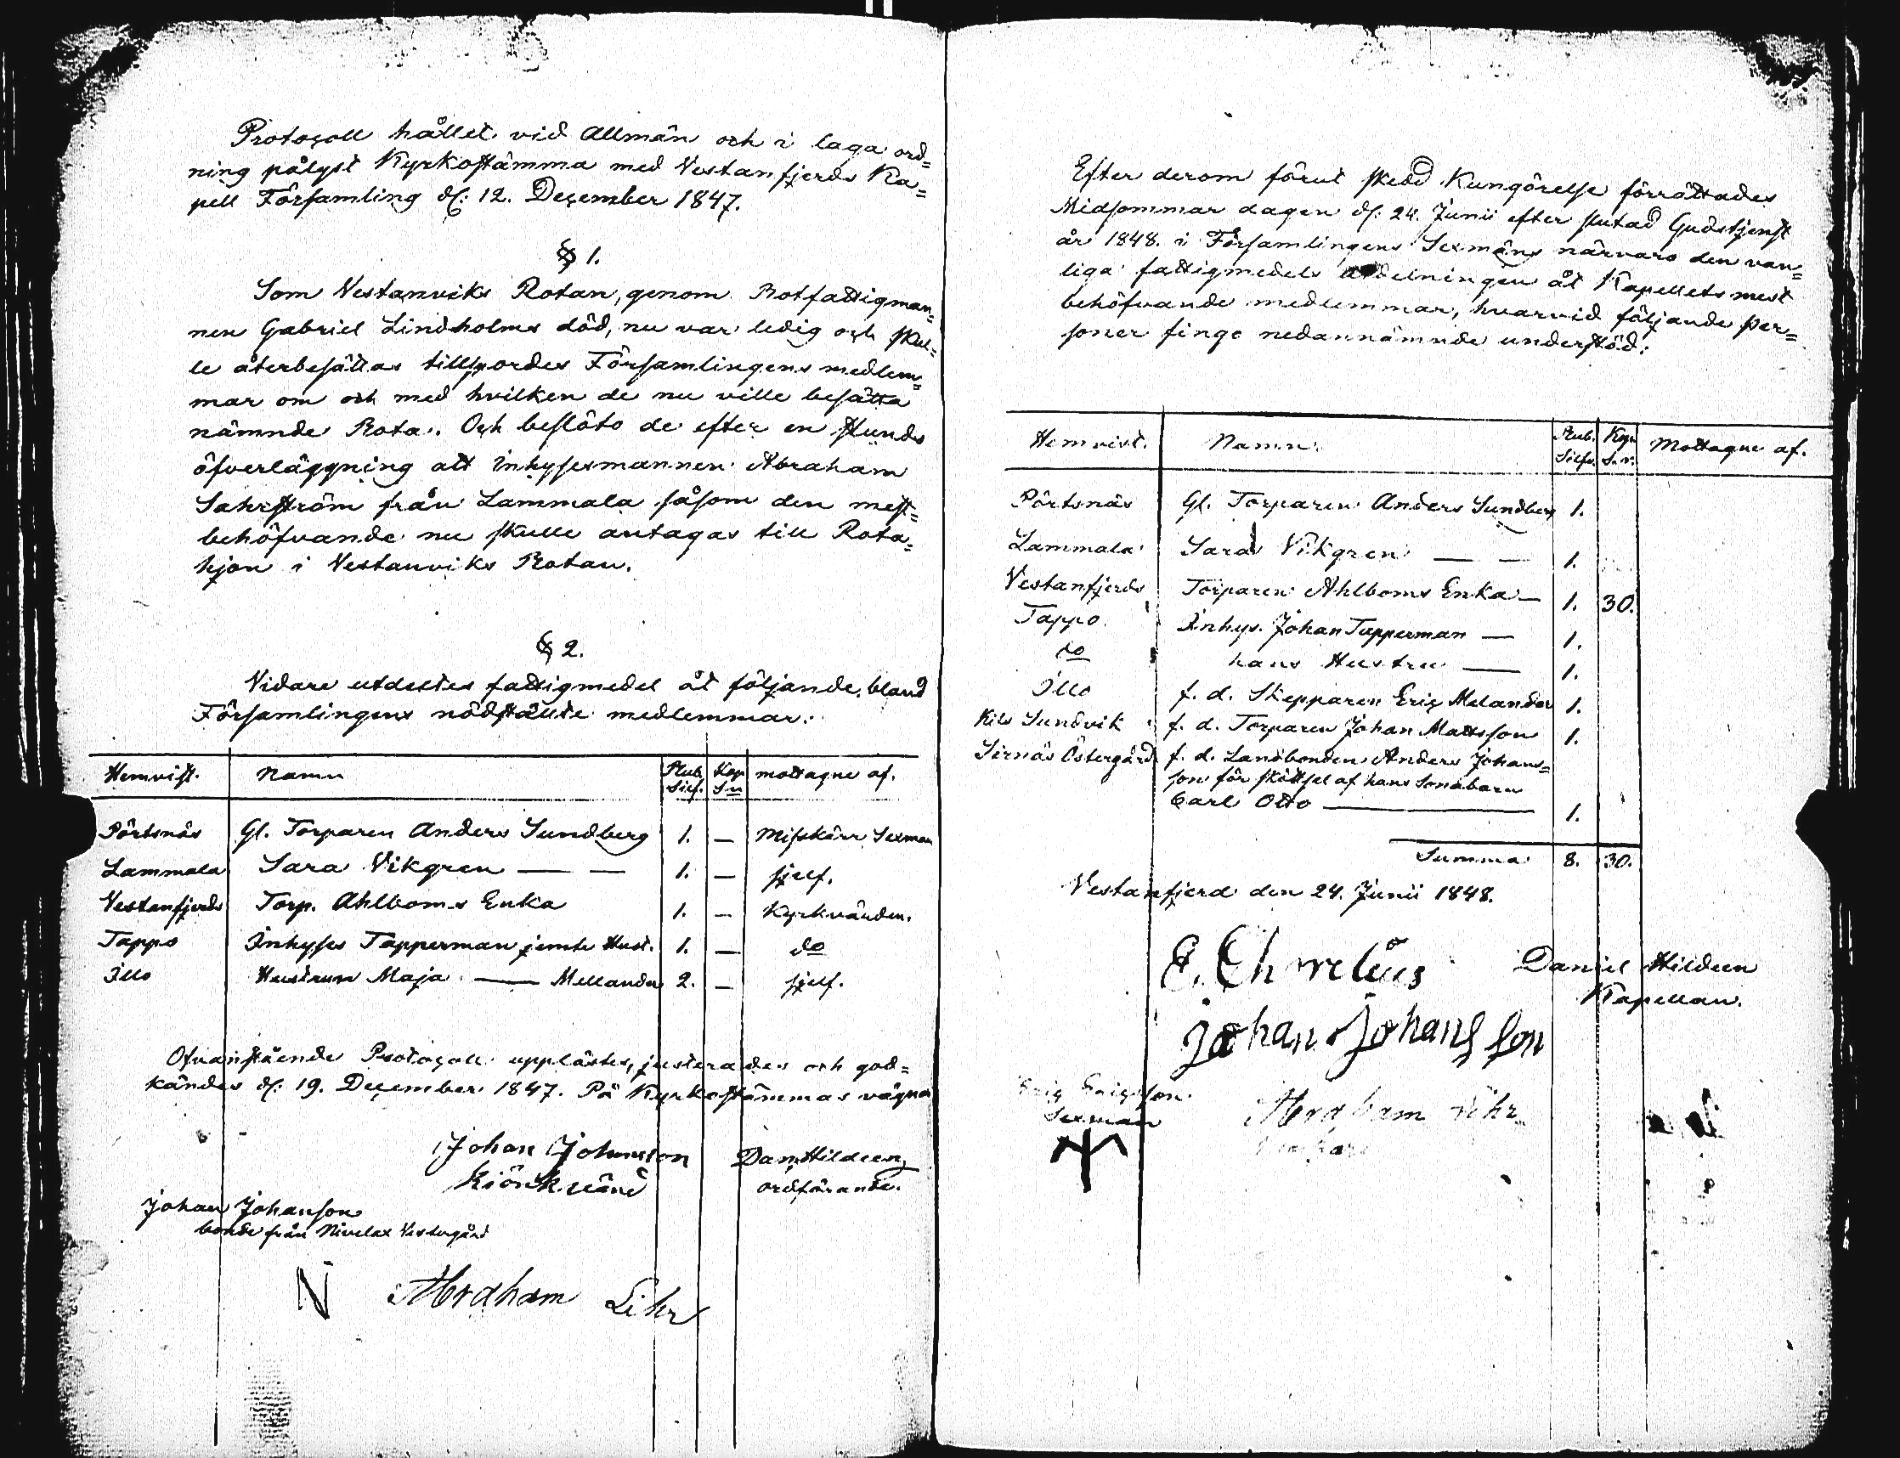 Protocoll hållet vid Allmän och i laga ord=
ning pålyst Kyrkostämma med Vestanfjerds Ka=
pell Församling d: 12. December 1847.
§ 1.
Som Vestanviks Rotan, genom Rotfattigman=
nen Gabriel Lindholms död, nu var ledig och skul=
le återbesättas tillspordes Församlingens medlem=
mar om och med hvilken de nu ville besätta
nämnde Rota. Och beslöto de efter en stunds
öfverläggning att inhysesmannen Abraham
Sahrström från Lammala såsom den mest=
behöfvande nu skulle antagas till Rota=
hjon i Vestanviks Rotan.
§ 2.
Vidare utdeltes fattigmedel åt följande, bland
Församlingens nödstälde medlemmar:
Hemvist. Namn Rub. Silf. Kop S.r. mottagne af.
Pörtsnäs Gl. Torparen Anders Sundberg 1. — Misskärr Sexman
Lammala Sara Vikgren — — 1. — sjelf.
Vestanfjerds Torp. Ahlboms Enka 1. — Kyrkvärden.
Tappo Inhyses Tapperman jemte Hust. 1. — do
Illo Hustrun Maja — Mellander 2. — sjelf.
Ofvanstående Protocoll upplästes, justerades och god=
kändes d: 19. December 1847. På Kyrkostämmas vägnar
Johan Johansson Dan Hildeen
Kiörkvärd ordförande.
Johan Johanson
bonde från Nivelax Vestergård
N Abraham Lihr
Efter derom förut skedd Kungörelse förrättades
Midsommar dagen d: 24. Junii efter slutad Gudstjenst
år 1848. i Församlingens Sexmäns närvaro den van=
liga fattigmedels utdelningen åt Kapellets mest
behöfvande medlemmar, hvarvid följande Per=
soner fingo nedannämnde understöd:
Hemvist. Namn. Rub. Silfv. Kop S.r. Mottagne af.
Pörtsnäs Gl. Torparen Anders Sundberg 1.
Lammala Sara Vikgren — — 1.
Vestanfjerds Torparen Ahlboms Enka — 1. 30.
Tappo Inhys. Johan Tapperman — 1.
do hans Hustru — 1.
Illo f. d. Skepparen Eric Melander 1.
Kila Sundvik f. d. Torparen Johan Mattsson 1.
Sirnäs Östergård f. d. Landbonden Anders Johans=
son för skötsel af hans Sonabarn
Carl Otto — 1.
Summa 8. 30.
Vestanfjerd den 24. Junii 1848.
Daniel Hildeen
Kapellan.
Johan Johansson
Eric Ericsson
Sexman
Abraham Lihr